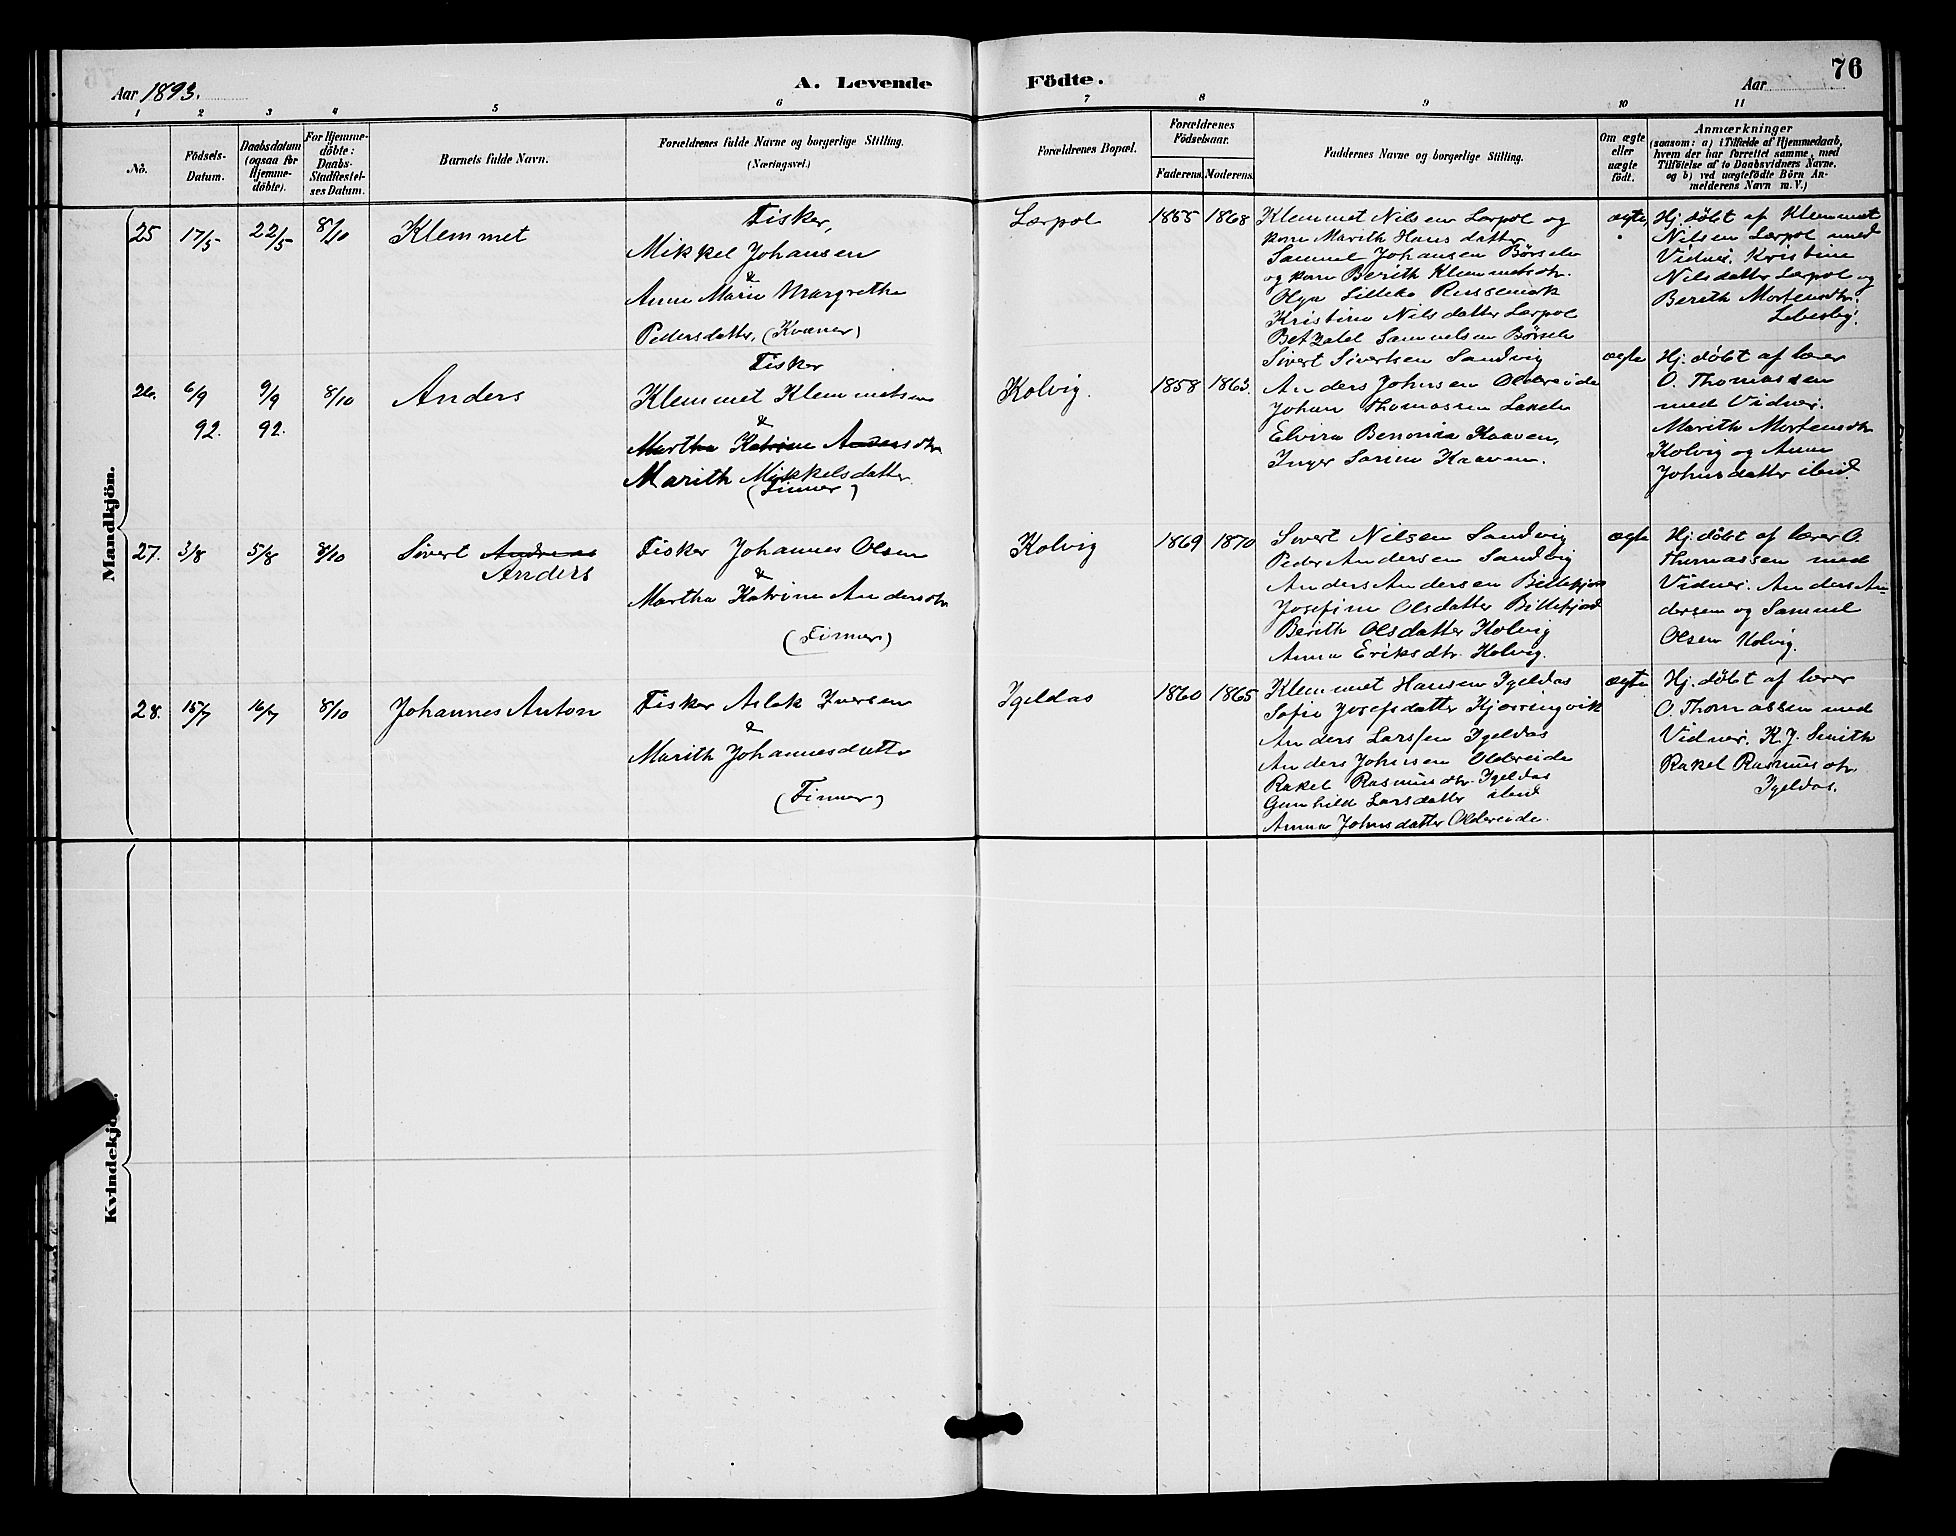 76
Aar 1893.
A. Levende Födte.
Aar
1 2 3 4 5 6 7 8 9 10 11
No.
Födsels-
Datum.
Daabsdatum
(ogsaa for
Hjemme-
döbte).
For Hjemme-
döbte:
Daabs-
Stadfæstel-
ses Datum.
Barnets fulde Navn.
Forældrenes fulde Navne og borgerlige Stilling.
(Næringsvei.)
Forældrenes Bopæl.
Forældrenes
Födselsaar.
Faderens. Moderens.
Faddernes Navne og borgerlige Stilling.
Om ægte
eller
uægte
födt.
Anmærkninger
(saasom: a) i Tilfælde af Hjemmedaab,
hvem der har forrettet samme, med
Tilföielse af to Daabsvidners Navne,
og b) ved uægtefödte Börn An-
melderens Navn m. V.)
Mandkjön.
25 17/5 22/5 8/10 Klemmet
Fisker,
Mikkel Johansen
&
Anne Marie Margrethe
Pedersdatter, (Kvæner)
Lærpol 1855 1868
Klemmet Nilsen Lærpol og
kone Marith Hansdatter
Samuel Johansen Börselv
og kone Berith Klemmetsdtr.
Olga Lilleka Russemark
Kristine Nilsdatter Lærpol
Betzabel Samuelsen Börselv
ægte,
Hj. döbt af Klemmet
Nilsen Lærpol med
Vidner. Kristine
Nilsdatter Lærpol og
Berith Mortensdtr.
Lebesby.
26. 6/9 9/9 8/10 Anders
92. 92.
Fisker
Klemmet Klemmetsen
&
Martha Katrine Andersdtr
Marith Mikkelsdatter
(Finner)
Kolvig. 1858 1863.
Sivert Sivertsen Sandvig
Anders Johnsen Oldereide
Johan Thomassen Lakselv
Elvira Benonia Kaaven,
Inger Sarine Kaaven.
ægte
Hj. döbt af lærer
O. Thomassen
med Vidner.
Marith Mortensdtr
Kolvig og Anne
Johnsdatter ibid.
27. 3/8 5/8 8/10 Sivert Andreas
Anders
Fisker Johannes Olsen
&
Martha Katrine Andersdtr
(Finner)
Kolvig 1869 1870
Sivert Nilsen Sandvig
Peder Andersen Sandvig
Anders Andersen Billefjord
Josefine Olsdatter Billefjord
Berith Olsdatter Kolvig
Anna Eriksdtr. Kolvig.
ægte
Hj. döbt af lærer O.
Thomassen med
Vidner. Anders An-
dersen og Samuel
Olsen Kolvig.
28. 15/7 16/7 8/10 Johannes Anton
Fisker Aslak Iversen
&
Marith Johannesdatter
(Finner)
Igeldas 1860 1865
Klemmet Hansen Igeldas
Sofie Josefsdatter Kjærringvik
Anders Larssen Igeldas
Anders Johnsen Oldereide
Rakel Rasmusdtr. Igeldas
Gunhild Larsdatter ibid
Anna Johnsdatter Oldereide.
ægte
Hj. döbt af lærer
O. Thomassen med
Vidner. K. J. Smith
Rakel Rasmusdtr.
Igeldas.
Kvindekjön.